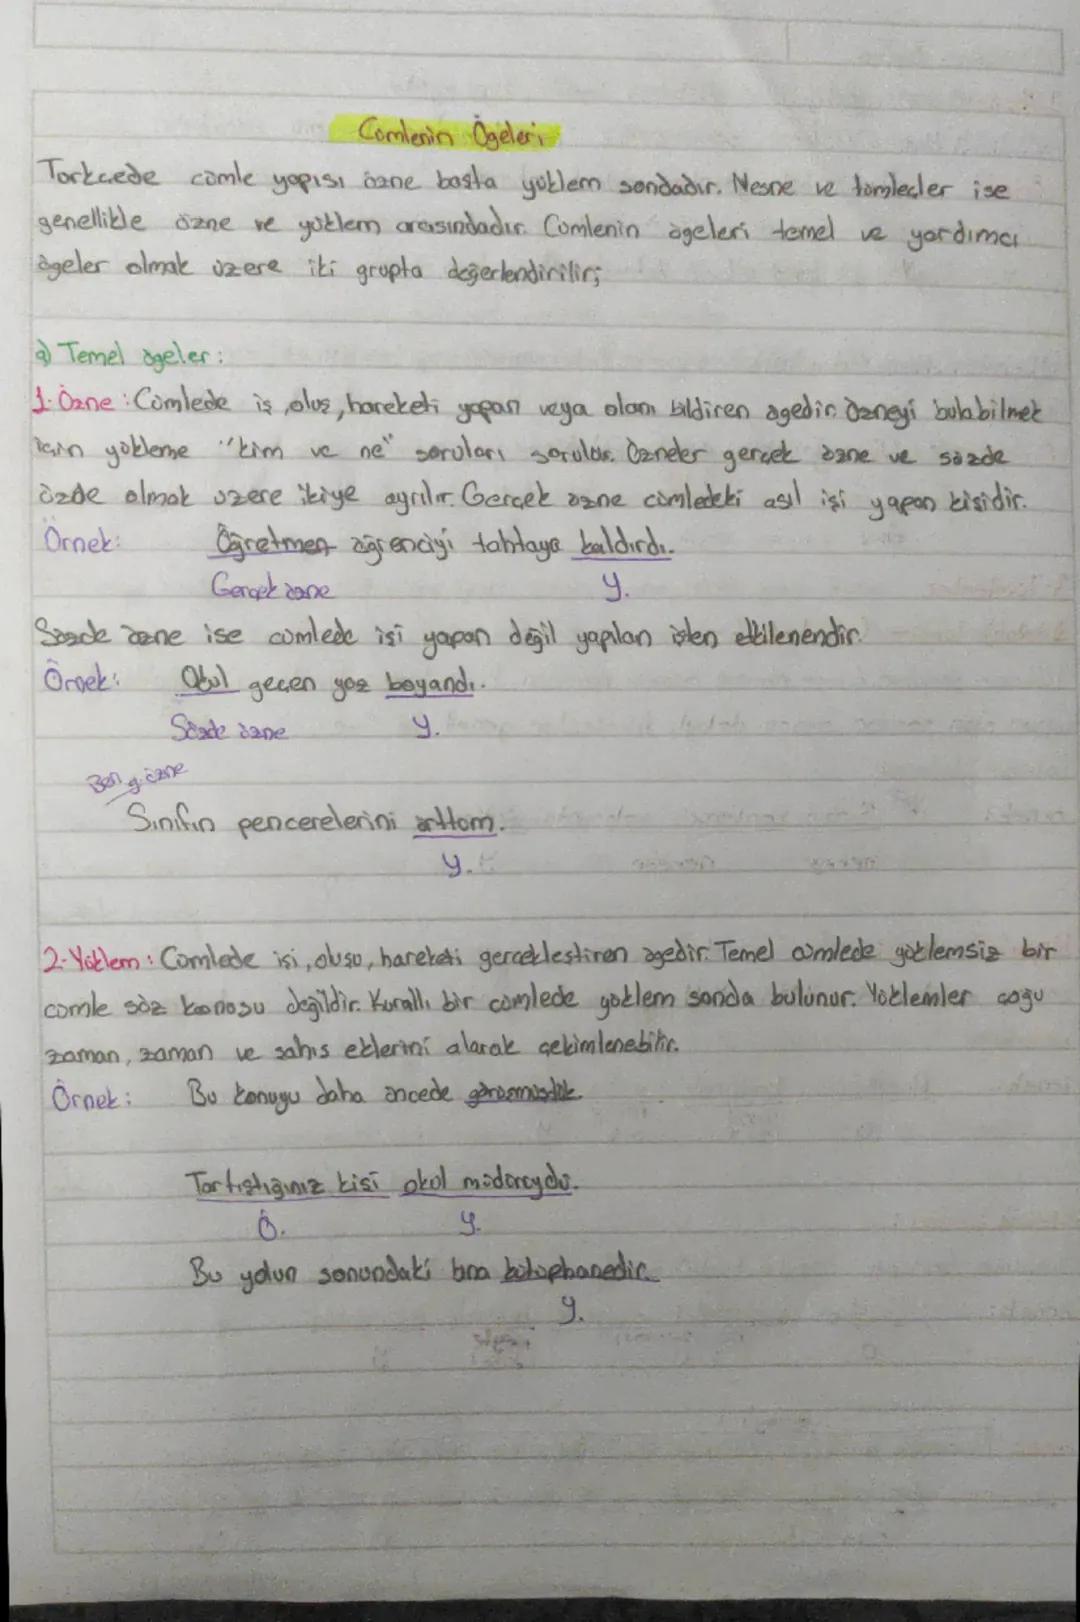 Cümlenin Ögeleri
Türkçede cümle yapısı özne başta yüklem sondadır. Nesne ve tümleçler ise
genellikle özne ve yüklem arasındadır. Cümlenin ögeleri temel ve yardımcı
ögeler olmak üzere iki grupta değerlendirilir;
a) Temel ögeler:
1-Özne: Cümlede iş, oluş, hareketi yapan veya olanı bildiren ögedir. Özneyi bulabilmek
için yükleme "kim ve ne" soruları sorulur. Özneler gerçek özne ve sözde
özde olmak üzere ikiye ayrılır. Gerçek özne cümledeki asıl işi yapan kişidir.
Örnek: Öğretmen öğrenciyi tahtaya kaldırdı.
Gerçek özne y.
Sözde özne ise cümlede işi yapan değil yapılan işten etkilenendir.
Örnek: Okul geçen yaz boyandı.
Sözde özne y.
Ben g. özne
Sınıfın pencerelerini örttüm.
y.
2-Yüklem: Cümlede işi, oluşu, hareketi gerçekleştiren ögedir. Temel cümlede yüklemsiz bir
cümle söz konusu değildir. Kurallı bir cümlede yüklem sonda bulunur. Yüklemler çoğu
zaman, zaman ve şahıs eklerini alarak çekimlenebilir.
Örnek: Bu konuyu daha öncede görüşmüştük.
Tartıştığınız kişi okul müdürüydü.
Ö. y.
Bu yolun sonundaki bina kütüphanedir.
y.